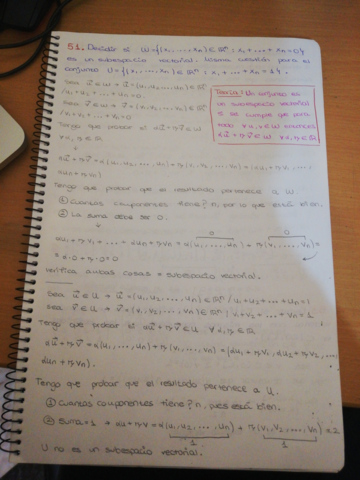 51. Decidir si W={(x₁,...,xn) ∈ ℝⁿ : x₁+...+xn=0}
es un subespacio vectorial. Misma cuestión para el
conjunto U={(x₁,...,xn) ∈ ℝⁿ : x₁+...+xn=1}.
Teoría: Un conjunto es
un subespacio vectorial
si se cumple que para
todo u,v ∈ W entonces
Sea u⃗ ∈ W → u⃗ = (u₁,u₂,...,un) ∈ ℝⁿ
/ u₁+u₂+...+un=0.
Sea v⃗ ∈ W → v⃗ = (v₁,v₂,...,vn) ∈ ℝⁿ
/ v₁+v₂+...+vn=0
Tengo que probar si αu⃗+βv⃗ ∈ W
∀ α,β ∈ ℝ
↓
αu⃗+βv⃗ = α(u₁,u₂,...,un)+β(v₁,v₂,...,vn) =
αun+βvn)
Tengo que probar que el resultado pertenece a W
① Cuántas componentes tiene? n, por lo que está bien.
② La suma debe ser 0.
0 0
αu₁+βv₁+...+αun+βvn = α(u₁,...,un)+β(v₁,...,vn)=
= α·0+β·0=0
Verifica ambas cosas → subespacio vectorial.
Sea u⃗ ∈ U → u⃗=(u₁,u₂,...,un) ∈ ℝⁿ / u₁+u₂+...+un=1
Sea v⃗ ∈ U → v⃗=(v₁,v₂,...,vn) ∈ ℝⁿ / v₁+v₂+...+vn=1
Tengo que probar si αu⃗+βv⃗ ∈ U ∀ α,β ∈ ℝ
αu⃗+βv⃗ = α(u₁,u₂,...,un)+β(v₁,v₂,...,vn) = (αu₁+βv₁, αu₂+βv₂,...,
αun+βvn).
Tengo que probar que el resultado pertenece a U.
① Cuántas componentes tiene? n, pues está bien.
② Suma=1 → αu+βv=α(u₁,u₂,...,un)+β(v₁,v₂,...,vn)
1 1
U no es un subespacio vectorial.